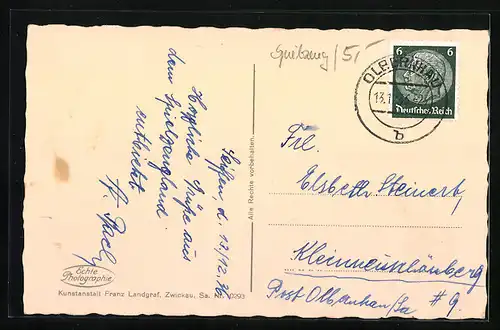 Spielzeug / 5,-
Seiffen, d. 13/12. 36
Herzliche Grüße aus
dem Spielzeugland
entbietet
Echte
Photographie
Kunstanstalt Franz Landgraf, Zwickau, Sa. Nr.
Alle Rechte vorbehalten.
6 6
Deutsches Reich
OLBERNHAU
13.
b
Frl.
Elsbeth Steinert
Kleinneuschönberg
Post Olbernhau/Sa # 9.